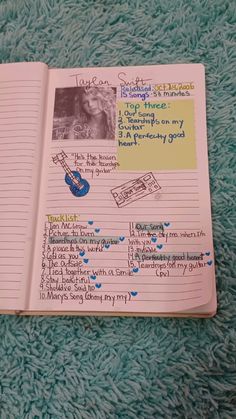 Taylor Swift
Released: Oct 24, 2006
15 Songs: 54 minutes
Top three:
1. Our Song
2. Teardrops on my
Guitar
3. A perfectly good
heart.
"He's the reason
for the teardrops
on my guitar"
Our Song
Tracklist:
1. Tim McGraw
2. Picture to burn
3. Teardrops on my guitar
4. A place in this world
5. Cold as you
6. The outside
7. Tied together with a Smile
8. Stay beautiful
9. Should've Said no
10. Marys Song (oh my my my)
11. Our Song
12. I'm only me when I'm
with you
13. Invisible
14. A perfectly good heart
15. Teardrops on my guitar